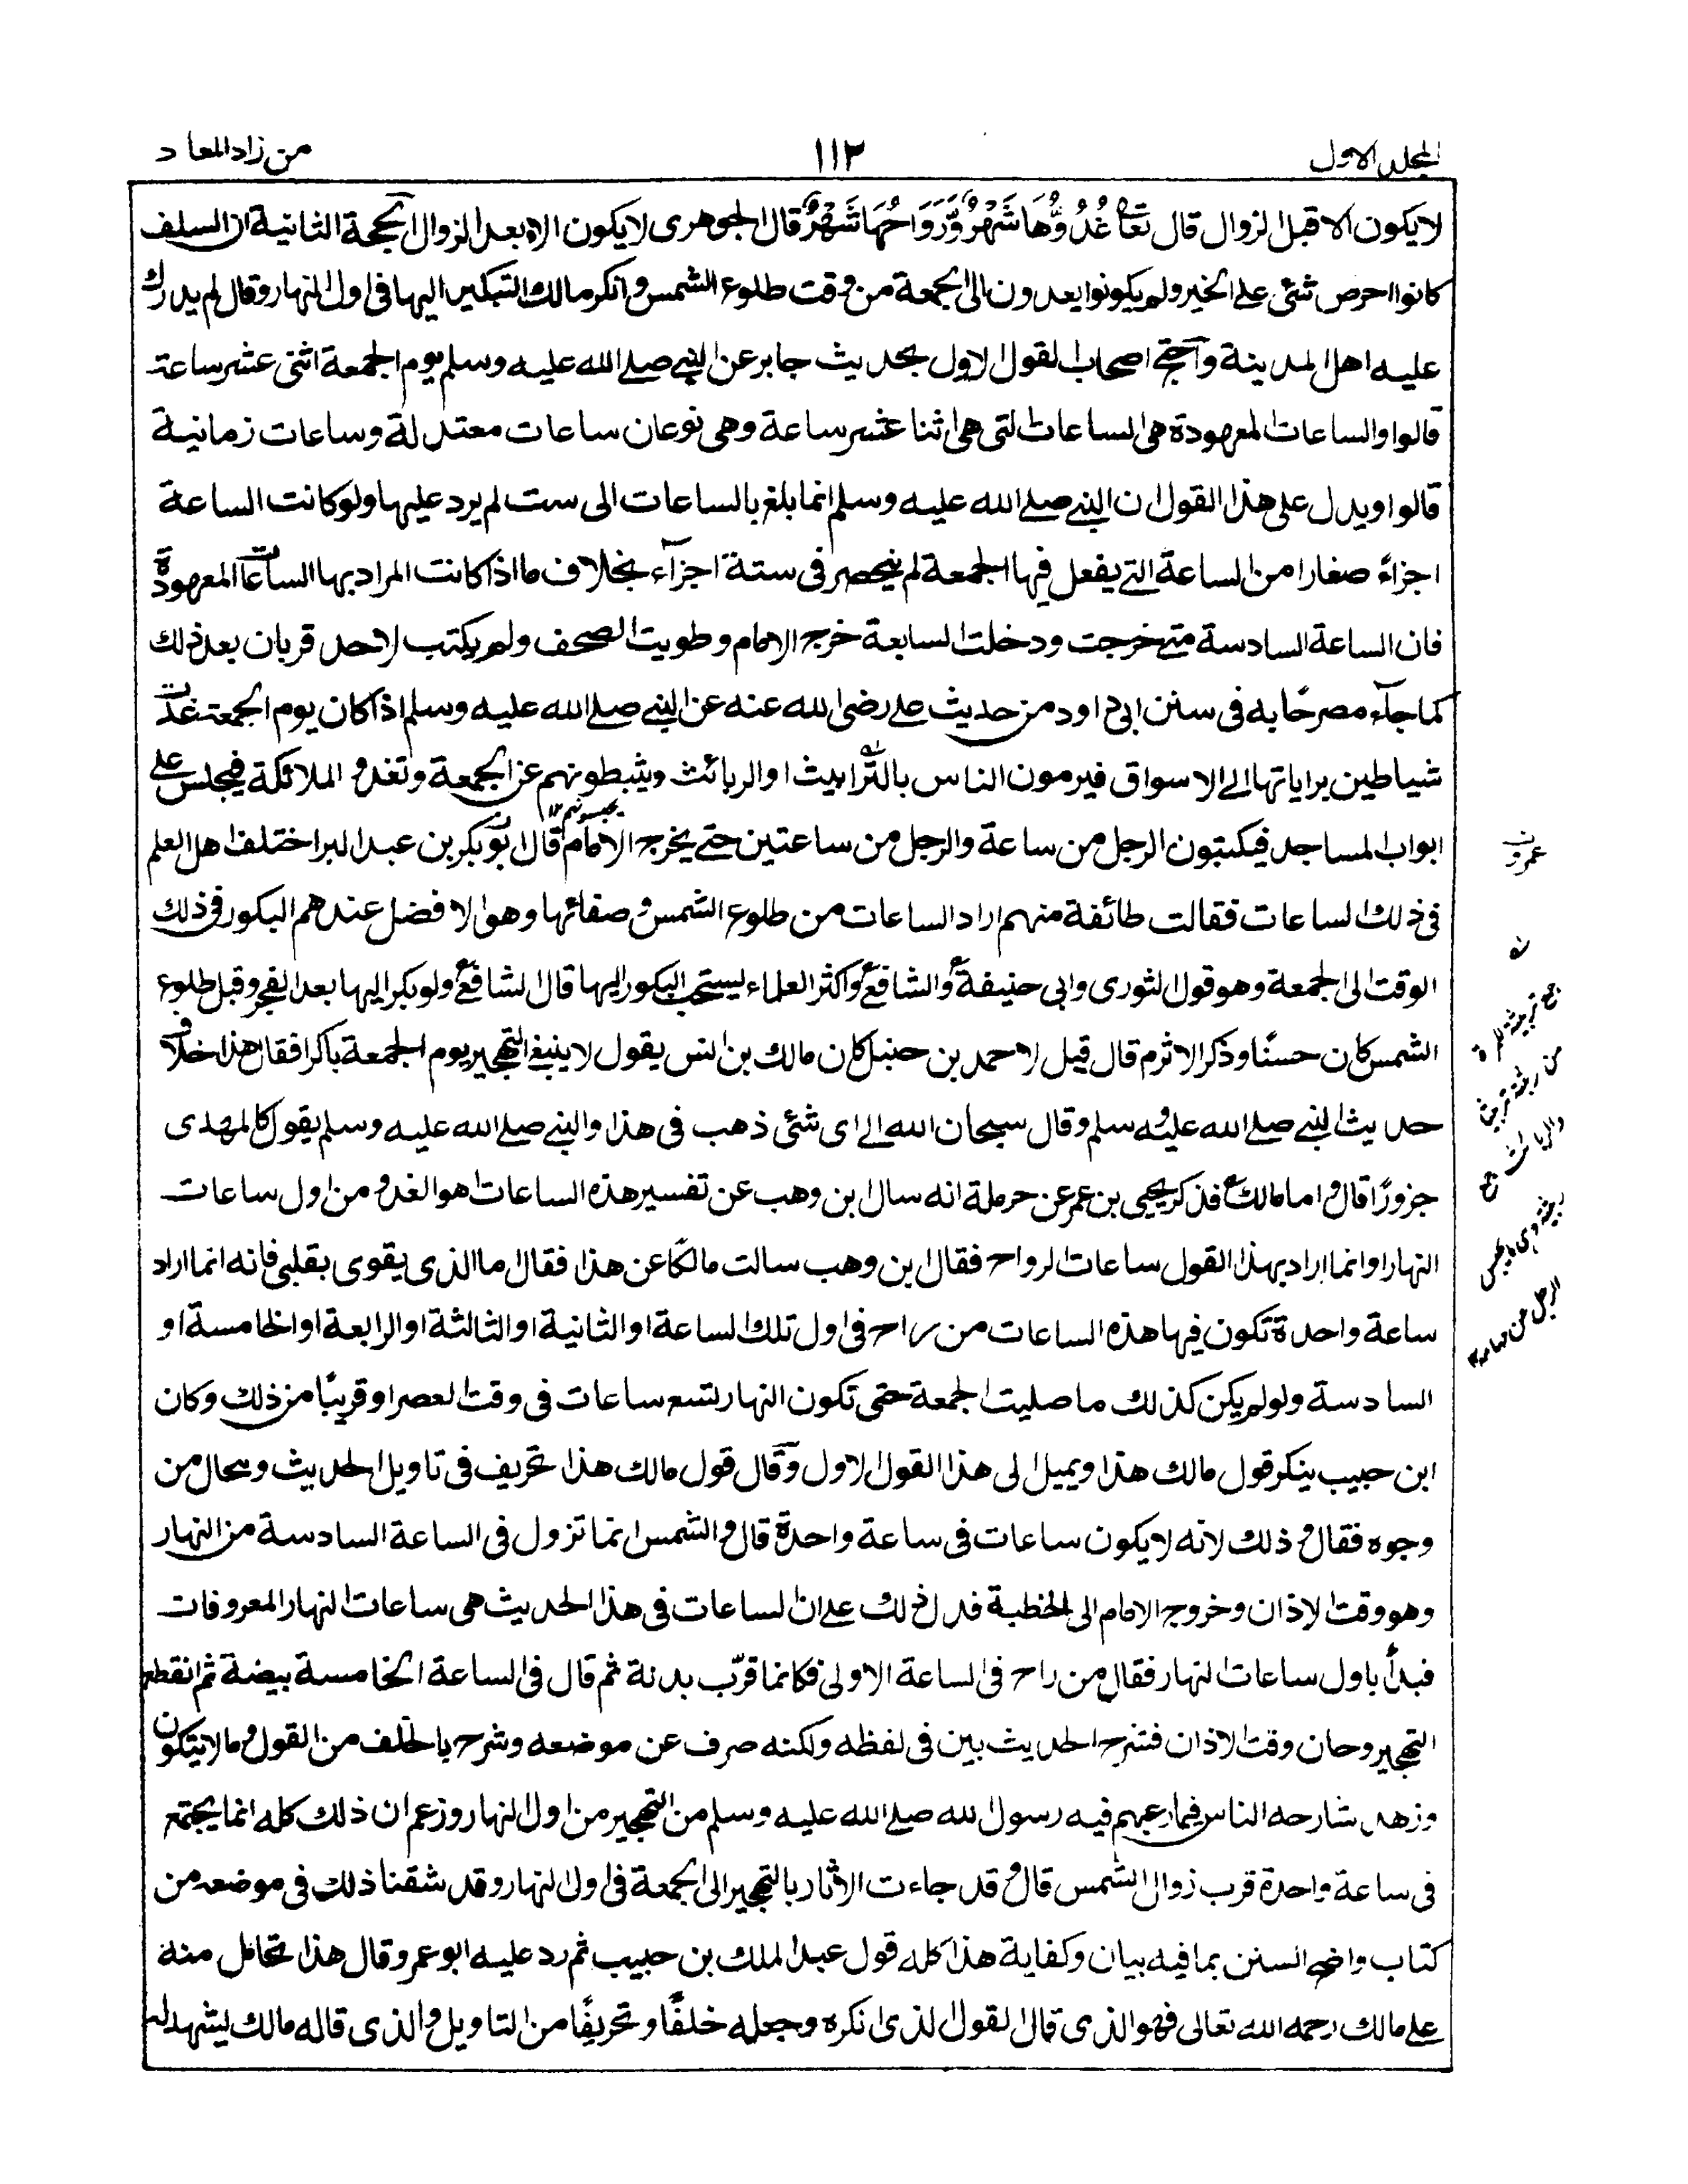 المجلد الاول
١١٢
من زاد المعاد
لا يكون الا قبل الزوال قال تعا غُدُوُّهَا شَهْرٌ وَّرَوَاحُهَا شَهْرٌ قال الجوهرى لا يكون الا بعد الزوال الحجة الثانية ان السلف
كانوا احرص شئى على الخير ولم يكونوا يغدون الى الجمعة من وقت طلوع الشمس وانكر مالك التبكير اليها فى اول النهار وقال لم يدرك
عليه اهل المدينة واحتج اصحاب القول الاول بحديث جابر عن النبى صلى الله عليه وسلم يوم الجمعة اثنى عشر ساعة
قالوا والساعات المعهودة هى الساعات التى هى اثنا عشر ساعة وهى نوعان ساعات معتدلة وساعات زمانية
قالوا ويدل على هذا القول ان النبى صلى الله عليه وسلم انما بلغ بالساعات الى ست لم يزد عليها ولو كانت الساعة
اجزاءً صغارا من الساعة التى يفعل فيها الجمعة لم ينحصر فى ستة اجزاء بخلاف ما اذا كانت المراد بها الساعات المعهودة
فان الساعة السادسة متى خرجت ودخلت السابعة خرج الامام وطويت الصحف ولم يكتب لاحد قربان بعد ذلك
كما جاء مصرحًا به فى سنن ابى داود من حديث على رضى الله عنه عن النبى صلى الله عليه وسلم اذا كان يوم الجمعة غدت
شياطين براياتها الى الاسواق فيرمون الناس بالترابيث او الربائث ويثبطونهم عن الجمعة وتغدو الملائكة فيجلس على
ابواب المساجد فيكتبون الرجل من ساعة والرجل من ساعتين حتى يخرج الامام قال ابو بكر بن عبد البر اختلف اهل العلم
فى ذلك الساعات فقالت طائفة منهم اراد الساعات من طلوع الشمس وصفائها وهو الافضل عندهم البكور فى ذلك
الوقت الى الجمعة وهو قول الثورى وابى حنيفة والشافع واكثر العلماء ليستحب البكور اليها قال الشافع ولو بكر اليها بعد الفجر وقبل طلوع
الشمس كان حسنًا وذكر الاثرم قال قيل لاحمد بن حنبل كان مالك بن انس يقول لا ينبغى التهجير يوم الجمعة باكرا فقال هذا خلاف
حديث النبى صلى الله عليه وسلم وقال سبحان الله الى اى شئى ذهب فى هذا والنبى صلى الله عليه وسلم يقول كالمهدى
جزورًا قال واما مالك فذكر يحيى بن عمر عن حرملة انه سال ابن وهب عن تفسير هذه الساعات اهو الغدو من اول ساعات
النهار او انما اراد بهذا القول ساعات الرواح فقال ابن وهب سالت مالكًا عن هذا فقال ما الذى يقوى بقلبى فانه انما اراد
ساعة واحدة تكون فيها هذه الساعات من راح فى اول تلك الساعة او الثانية او الثالثة او الرابعة او الخامسة او
السادسة ولو لم يكن كذلك ما صليت الجمعة حتى تكون النهار لتسع ساعات فى وقت العصر او قريبًا من ذلك وكان
ابن حبيب ينكر قول مالك هذا ويميل الى هذا القول الاول وقال قول مالك هذا تحريف فى تاويل الحديث ومحال من
وجوه فقال و ذلك لانه لا يكون ساعات فى ساعة واحدة قال والشمس انما تزول فى الساعة السادسة من النهار
وهو وقت الاذان وخروج الامام الى الخطبة فدل ذلك على ان الساعات فى هذا الحديث هى ساعات النهار المعروفات
فبدأ باول ساعات النهار فقال من راح فى الساعة الاولى فكانما قرّب بدنة ثم قال فى الساعة الخامسة بيضة ثم انقطع
التهجير وحان وقت الاذان فشرح الحديث بين فى لفظه ولكنه صرف عن موضعه وشرح بالخلف من القول وما لا يتكون
وزهد شارحه الناس فيما رغبهم فيه رسول الله صلى الله عليه وسلم من التهجير من اول النهار وزعم ان ذلك كله انما يجتمع
فى ساعة واحدة قرب زوال الشمس قال و قد جاءت الآثار بالتهجير الى الجمعة فى اول النهار وقد شقنا ذلك فى موضعه من
كتاب واضح السنن بما فيه بيان وكفاية هذا كله قول عبد الملك بن حبيب ثم رد عليه ابو عمر وقال هذا تحامل منه
على مالك رحمه الله تعالى فهو الذى قال القول الذى انكره وجعله خلفًا وتحريفًا من التاويل والذى قاله مالك ليشهد له